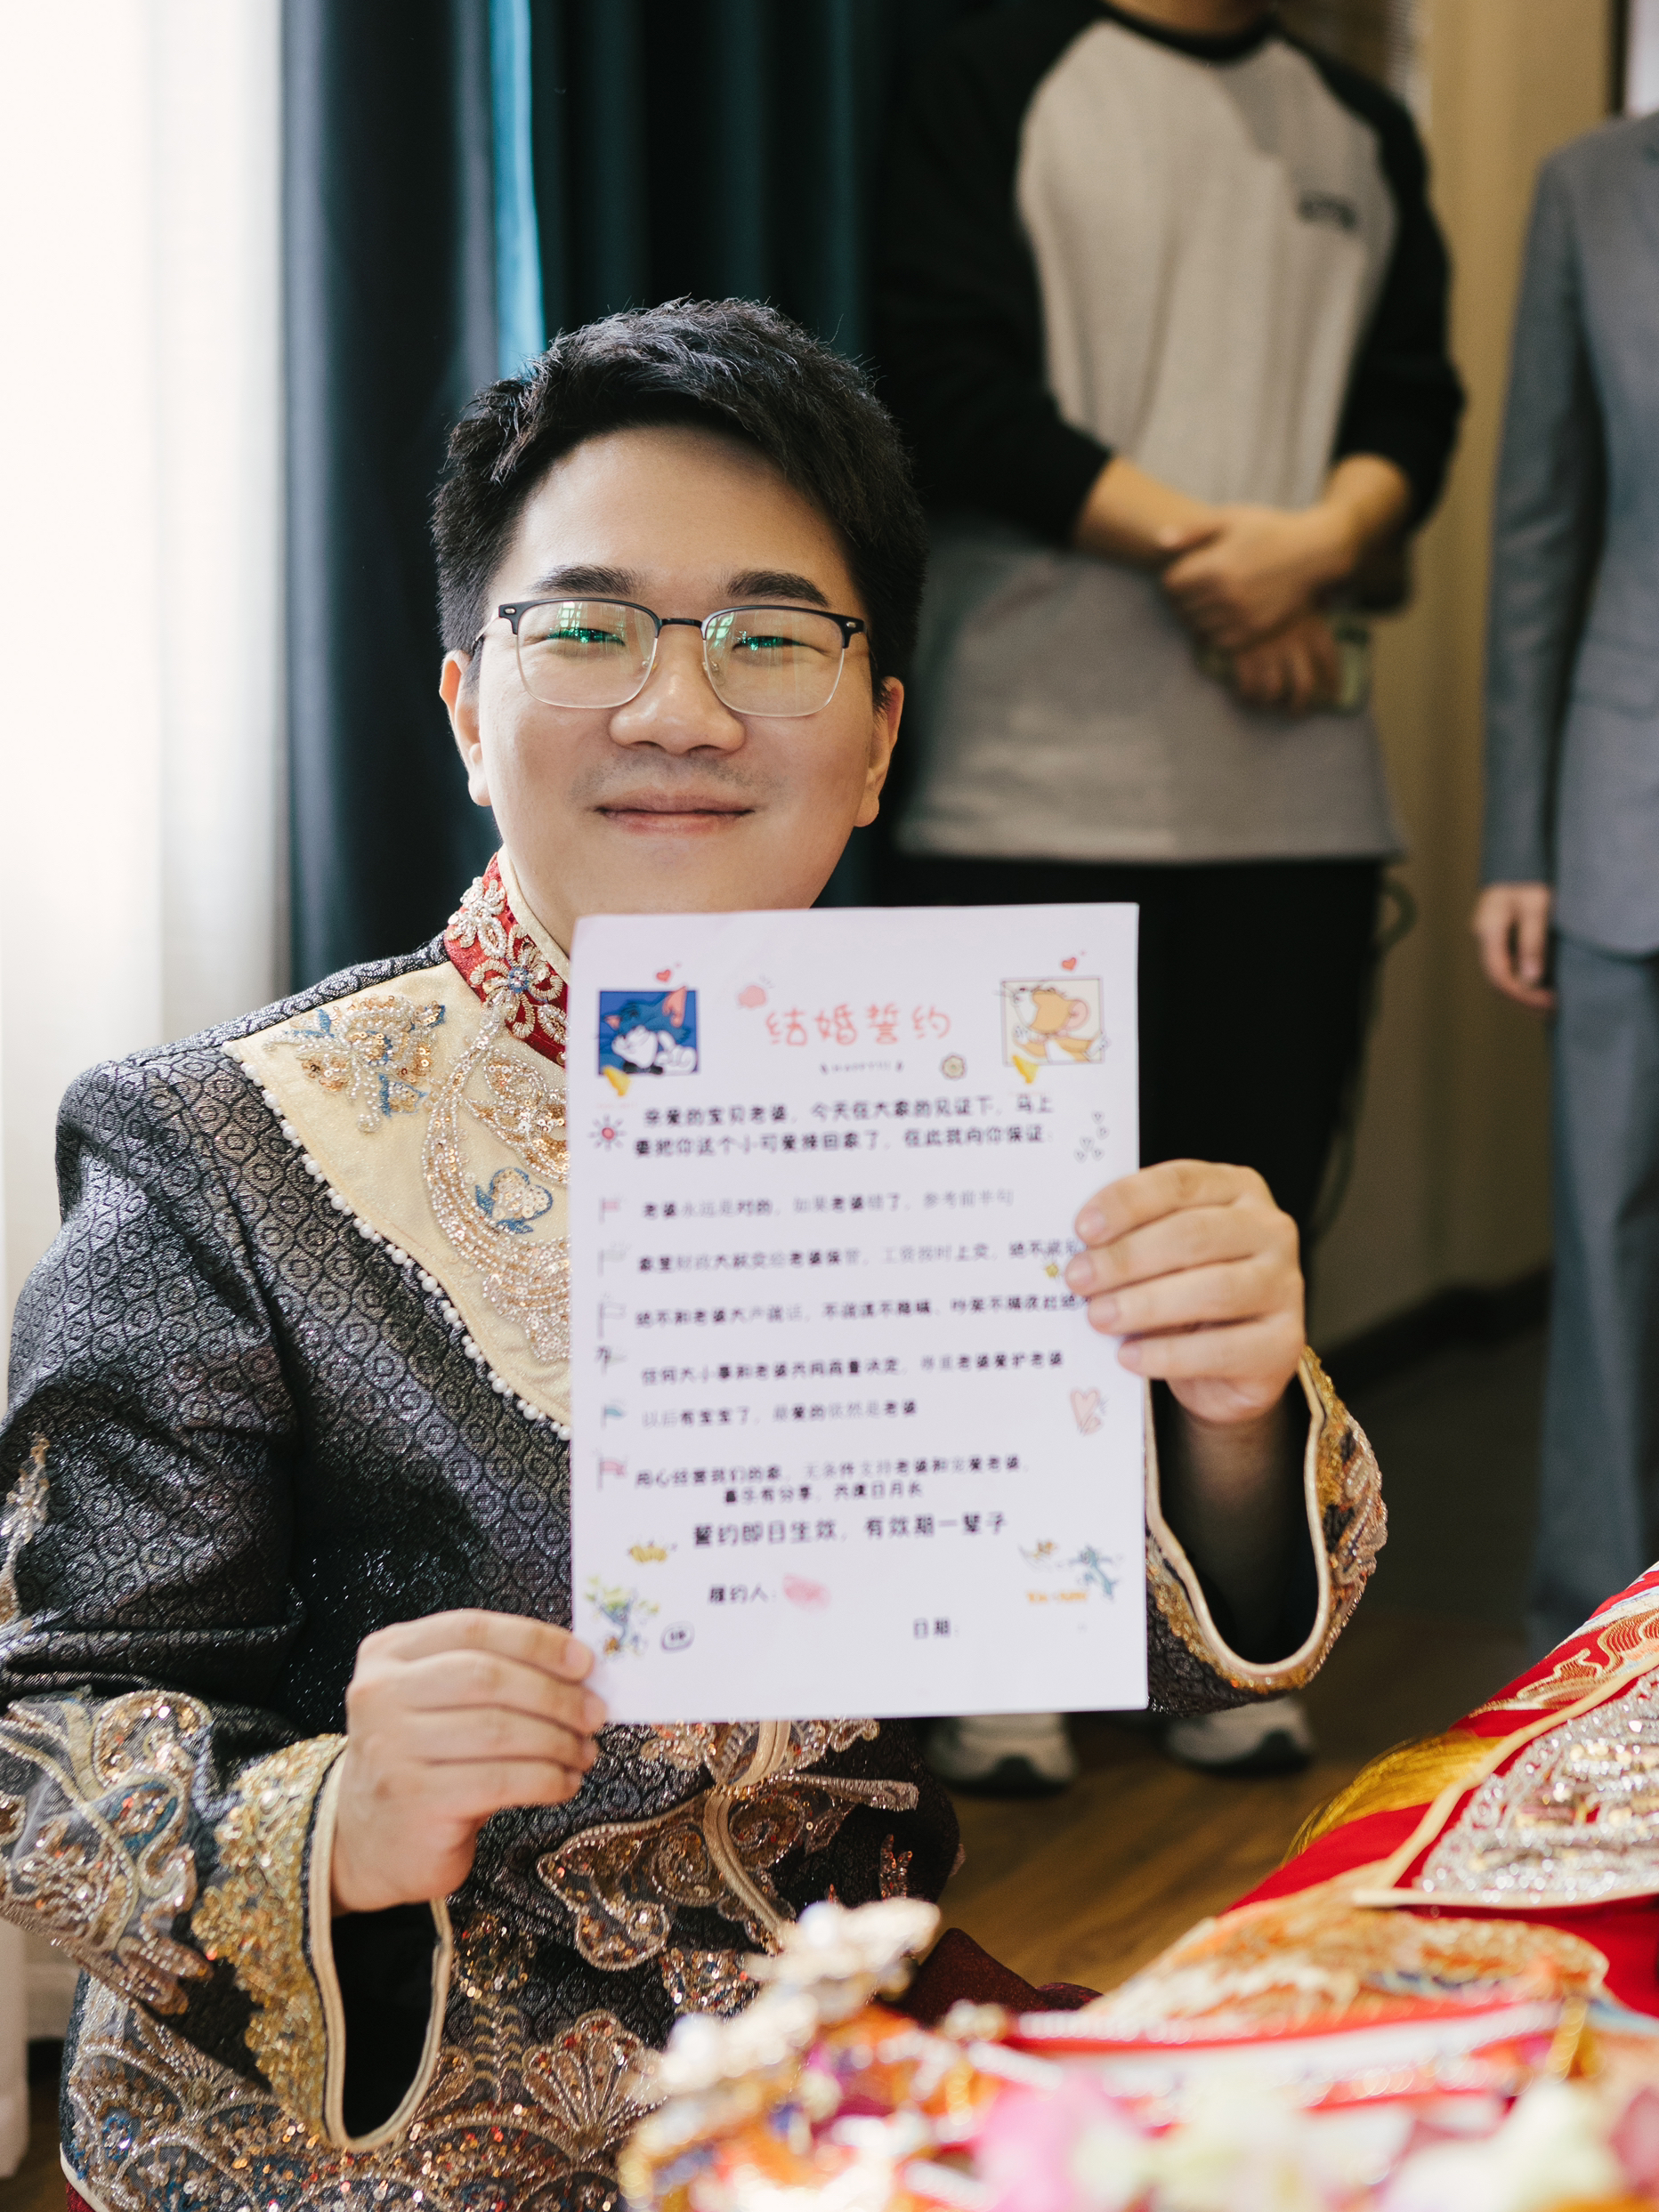 结婚誓约
亲爱的宝贝老婆，今天在大家的见证下，马上
要把你这个小可爱接回家了，在此我向你保证：
老婆永远是对的，如果老婆错了，参考前半句
家里财政大权交给老婆保管，工资按时上交，绝不
绝不和老婆大声说话，不说谎不隐瞒，吵架不隔夜
任何大小事和老婆共同商量决定，尊重老婆爱护老婆
以后有宝宝了，最爱的依然是老婆
用心经营我们的家，无条件支持老婆和宠爱老婆，
喜乐有分享，共度日月长
誓约即日生效，有效期一辈子
履约人：
日期：